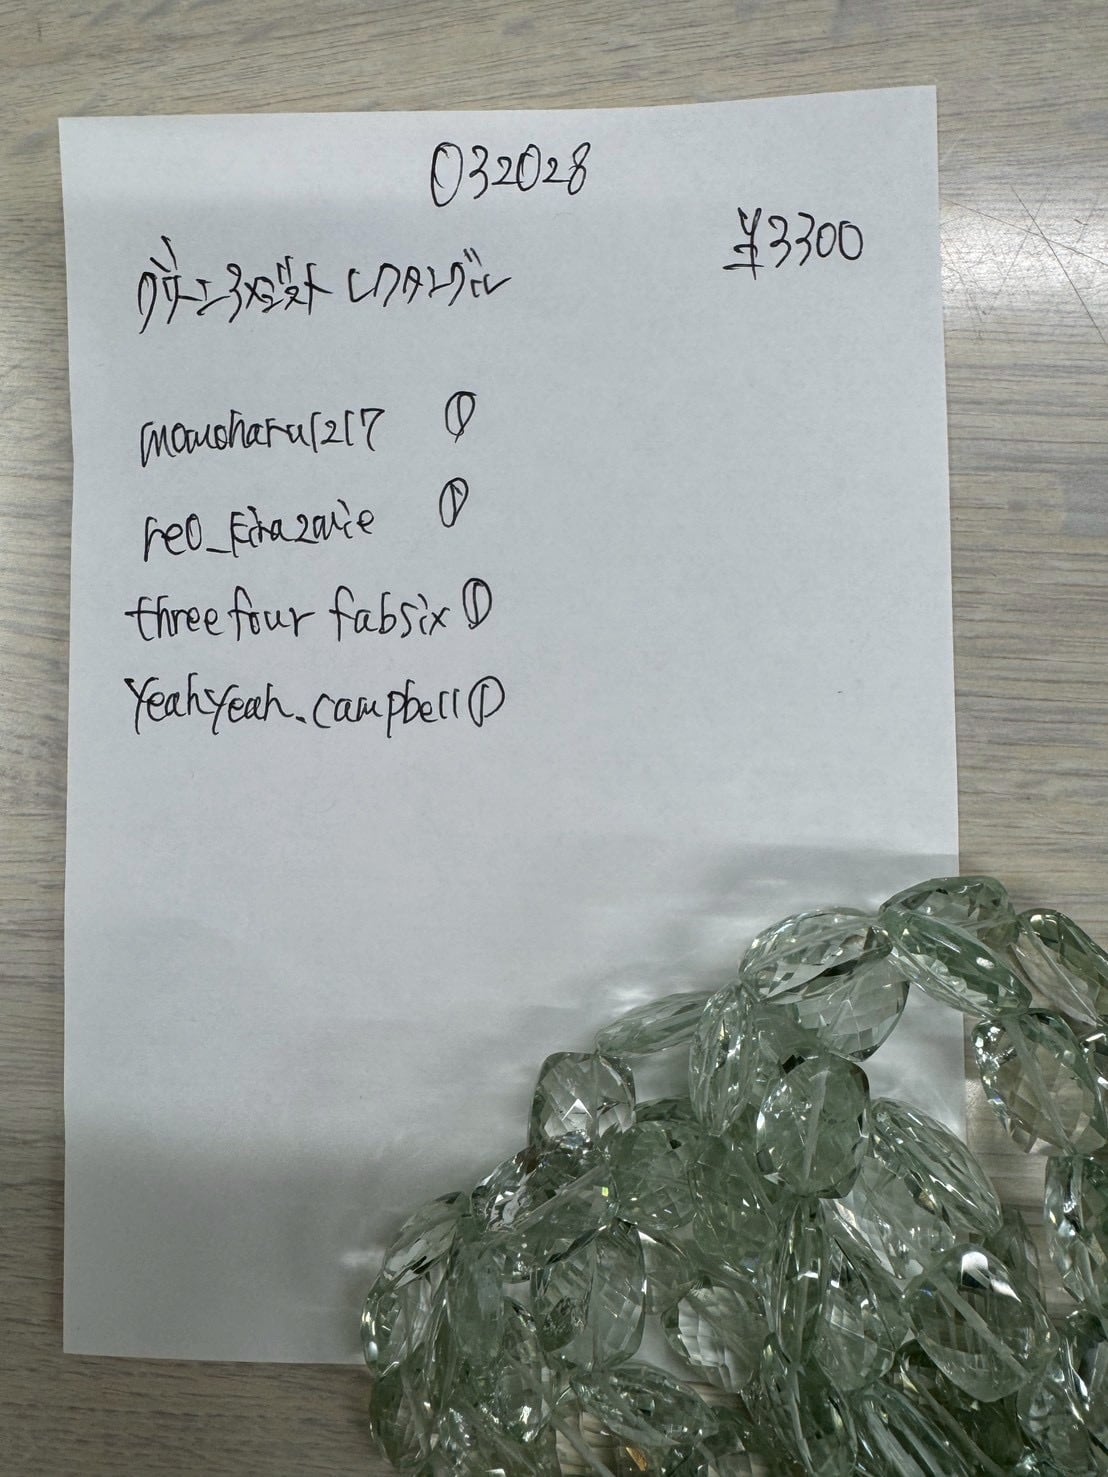 032028
¥3300
グリーンアメジスト レクタングル
momoharu1217 ①
reo_kirazarie ①
threefour fabsix ①
Yeahyeah.campbell ①